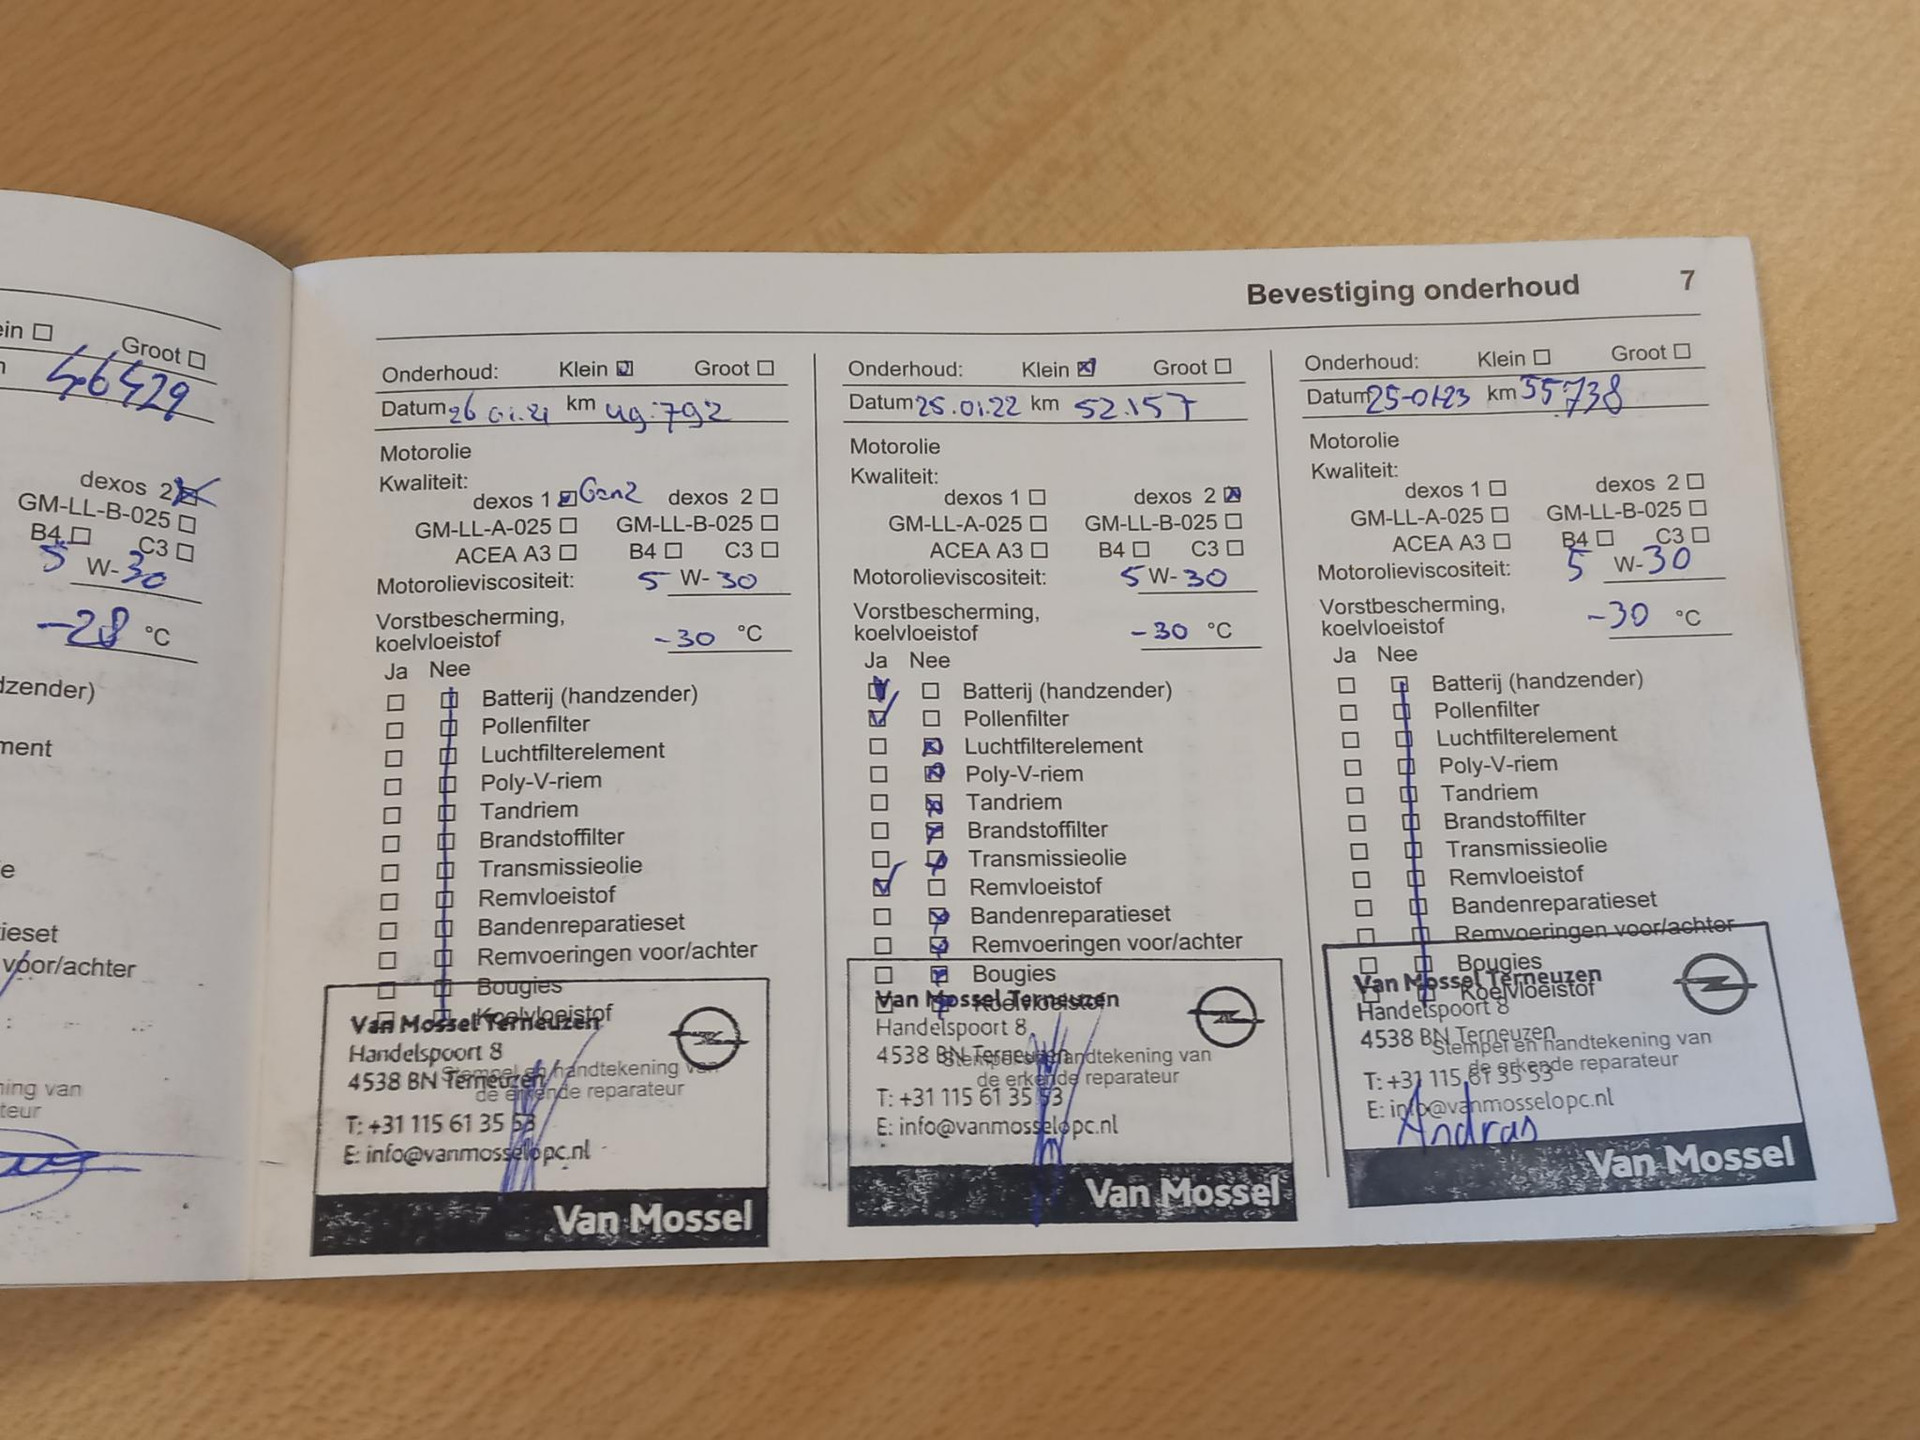 Groot
46429
dexos 2
GM-LL-B-025
B4 C3
5 W-30
-28 °C
voor/achter
Bevestiging onderhoud 7
Onderhoud: Klein Groot
Datum 26 01.21 km 49.792
Motorolie
Kwaliteit:
dexos 1 Gen2 dexos 2
GM-LL-A-025 GM-LL-B-025
ACEA A3 B4 C3
Motorolieviscositeit: 5 W-30
Vorstbescherming,
koelvloeistof -30 °C
Ja Nee
Batterij (handzender)
Pollenfilter
Luchtfilterelement
Poly-V-riem
Tandriem
Brandstoffilter
Transmissieolie
Remvloeistof
Bandenreparatieset
Remvoeringen voor/achter
Bougies
Koelvloeistof
Van Mossel Terneuzen
Handelspoort 8
Stempel en handtekening van
4538 BN Terneuzen
de erkende reparateur
T: +31 115 61 35 53
E: info@vanmosselopc.nl
Van Mossel
Onderhoud: Klein Groot
Datum 25.01.22 km 52.157
Motorolie
Kwaliteit:
dexos 1 dexos 2
GM-LL-A-025 GM-LL-B-025
ACEA A3 B4 C3
Motorolieviscositeit: 5 W-30
Vorstbescherming,
koelvloeistof -30 °C
Ja Nee
Batterij (handzender)
Pollenfilter
Luchtfilterelement
Poly-V-riem
Tandriem
Brandstoffilter
Transmissieolie
Remvloeistof
Bandenreparatieset
Remvoeringen voor/achter
Bougies
Koelvloeistof
Van Mossel Terneuzen
Handelspoort 8
4538 BN Terneuzen
Stempel en handtekening van
de erkende reparateur
T: +31 115 61 35 53
E: info@vanmosselopc.nl
Van Mossel
Onderhoud: Klein Groot
Datum 25-01-23 km 55738
Motorolie
Kwaliteit:
dexos 1 dexos 2
GM-LL-A-025 GM-LL-B-025
ACEA A3 B4 C3
Motorolieviscositeit: 5 W-30
Vorstbescherming,
koelvloeistof -30 °C
Ja Nee
Batterij (handzender)
Pollenfilter
Luchtfilterelement
Poly-V-riem
Tandriem
Brandstoffilter
Transmissieolie
Remvloeistof
Bandenreparatieset
Remvoeringen voor/achter
Bougies
Koelvloeistof
Van Mossel Terneuzen
Handelspoort 8
4538 BN Terneuzen
Stempel en handtekening van
de erkende reparateur
T: +31 115 61 35 53
E: info@vanmosselopc.nl
Andras
Van Mossel